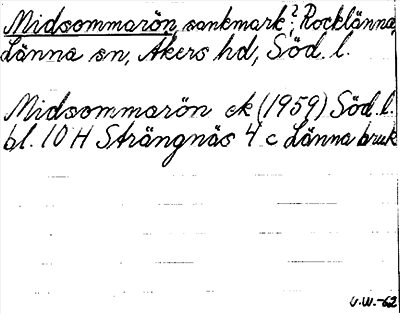 Midsommarön, sankmark?, Rocklänna,
Länna sn, Åkers hd, Söd. l.
Midsommarön ek (1959) Söd. l.
bl. 10 H Strängnäs 4 c Länna bruk
U.W.-62